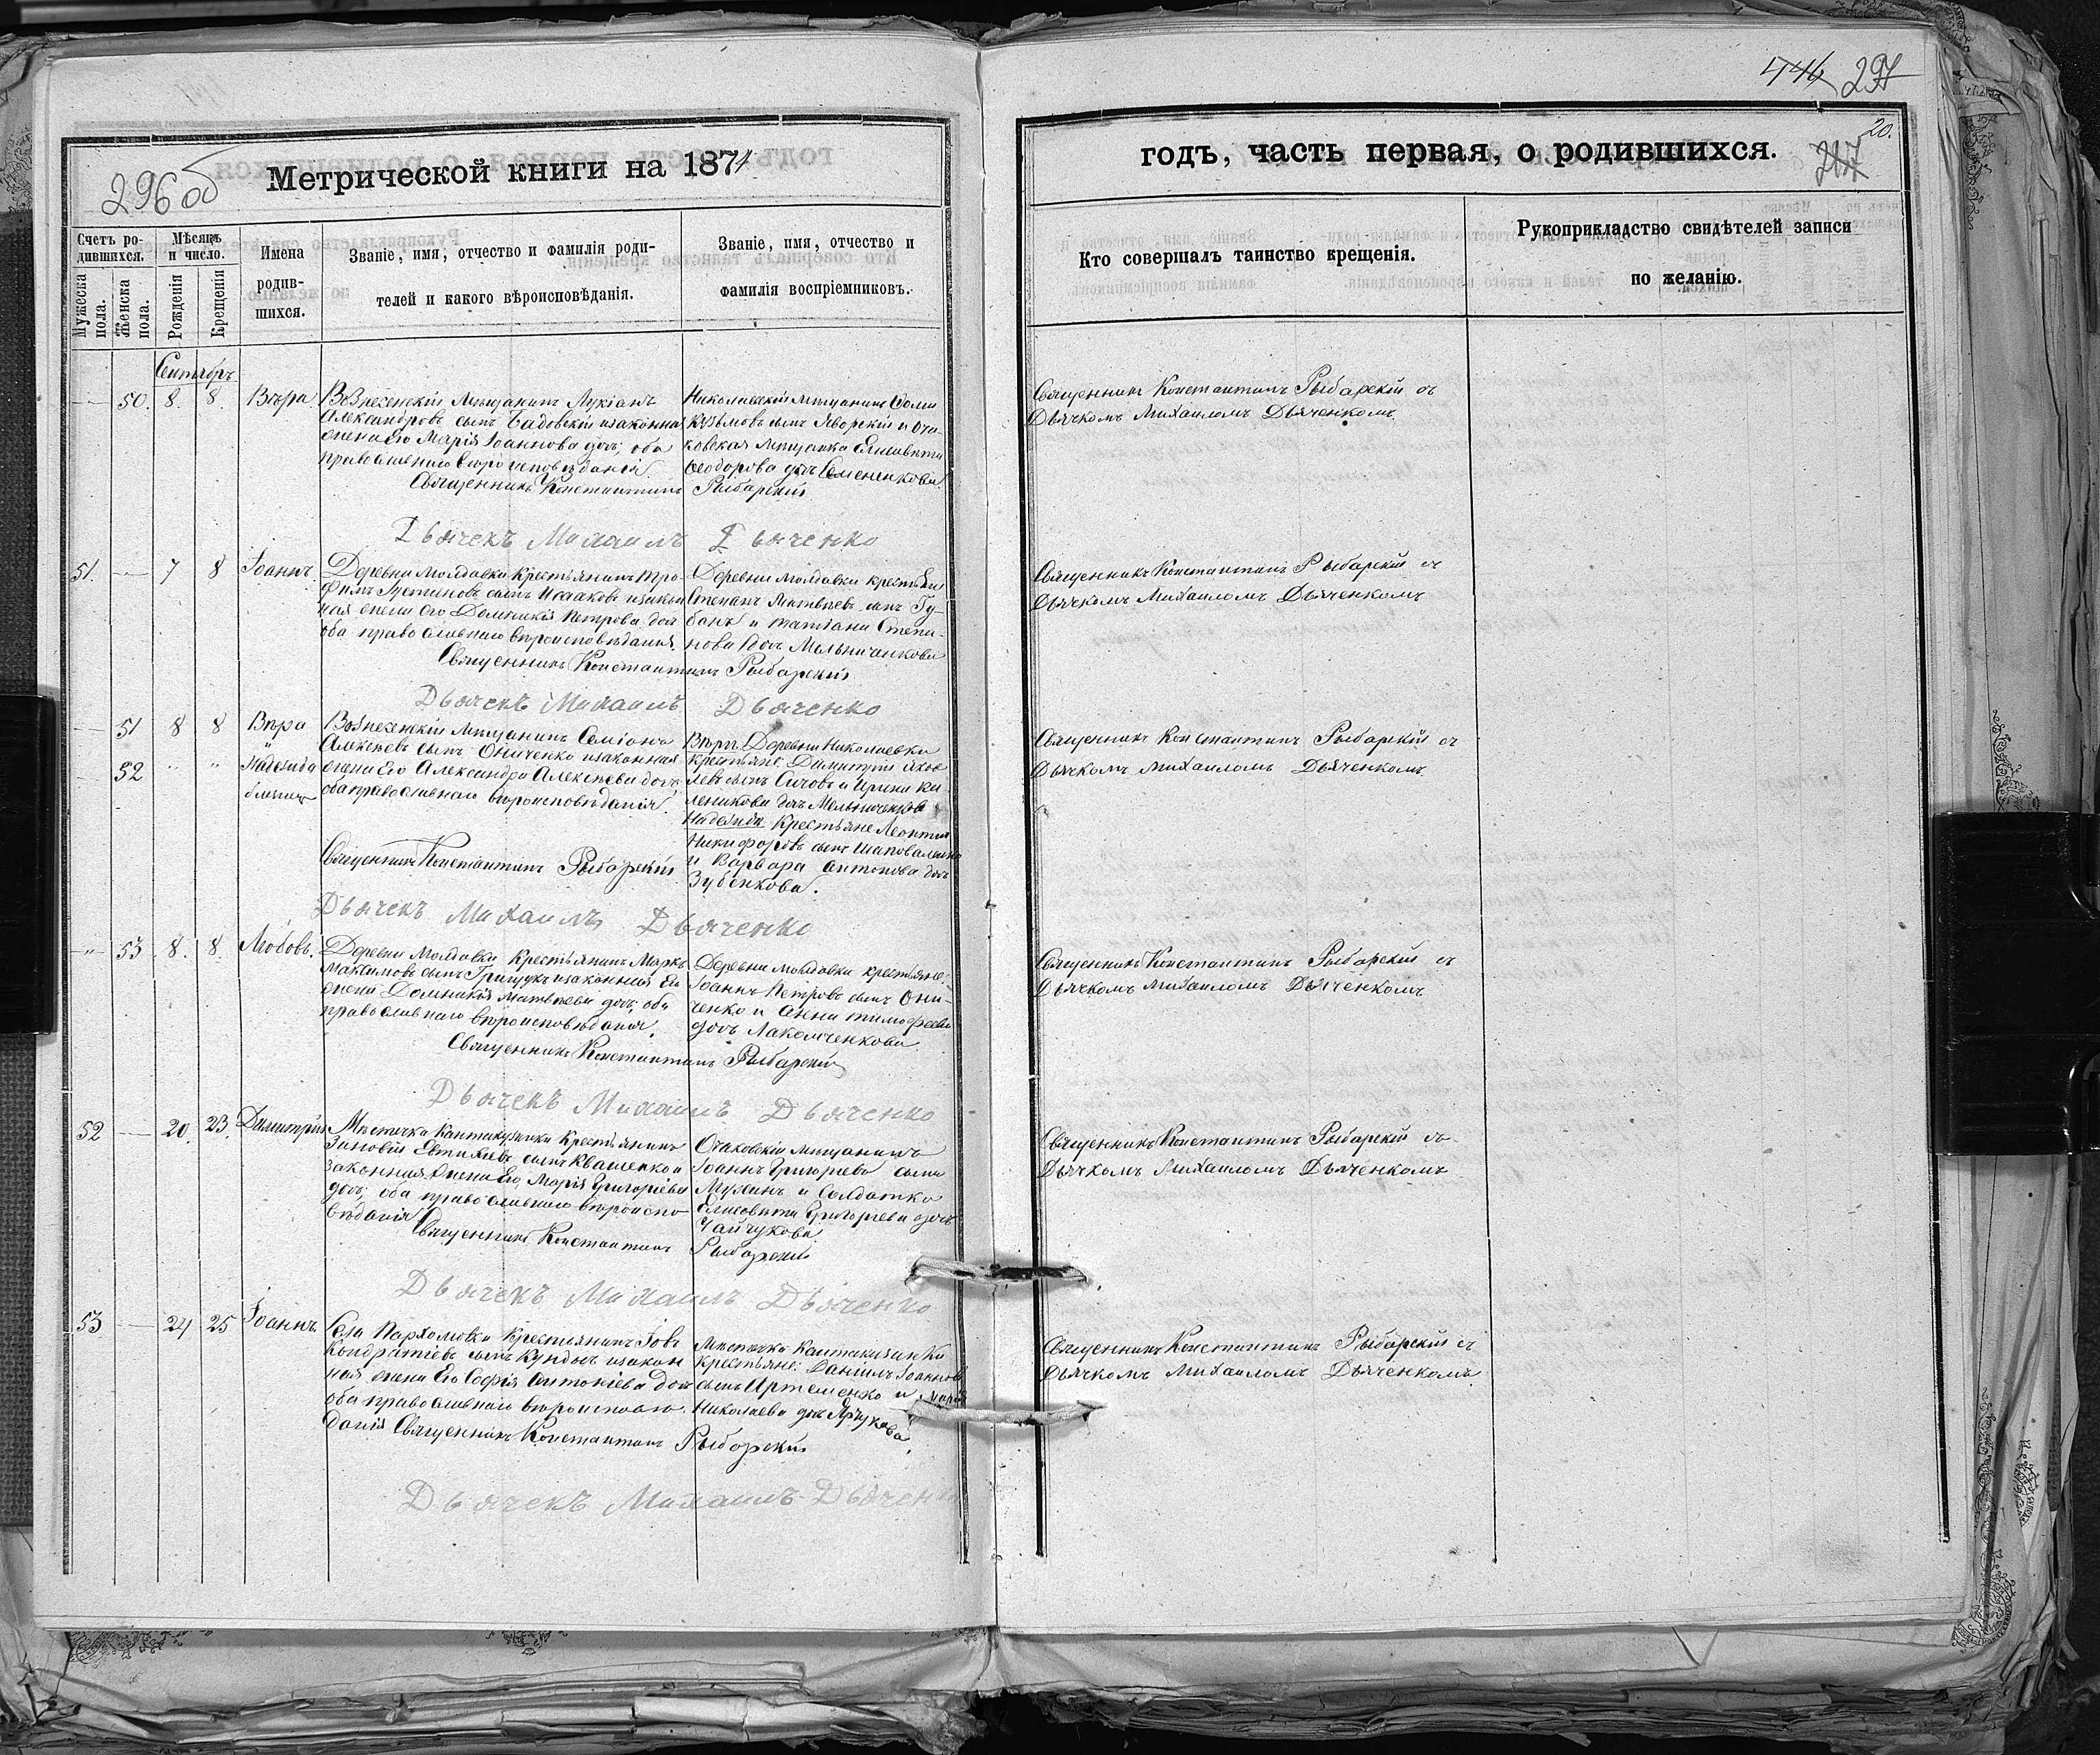 296 об
Метрической книги на 1874
Счетъ ро-
дившихся.
Мѣсяцъ
и число.
Мужеска
пола.
Женска
пола.
Рожденія
Крещенія
Имена
родив-
шихся.
Званіе, имя, отчество и фамилія роди-
телей и какого вѣроисповѣданія.
Званіе, имя, отчество и
фамилія воспріемниковъ.
Сентябрь
50. 8. 8. Вѣра
Вознесенскій мѣщанинъ Лукіанъ
Александровъ сынъ Бадовскій и законная
жена его Марія Іоаннова дочь, оба
православнаго вѣроисповѣданія
Николаевскій мѣщанинъ Фома
Кузьмовъ сынъ Яворскій и Оча-
ковская мѣщанка Елисавета
Феодорова дочь Семененкова
Священникъ Константинъ Рыбарскій
Дьячекъ Михаилъ Дьяченко
51. 7 8 Іоаннъ.
Деревни Молдавки крестьянинъ Тро-
фимъ Устиновъ сынъ Исааковъ и закон
ная жена его Домникія Петрова доч
оба православнаго вѣроисповѣданія.
Деревни Молдавки крестьяне
Степанъ Матвѣевъ сынъ Гу-
банъ и Татіана Степа-
нова дочь Мельниченкова
Священникъ Константинъ Рыбарскій
Дьячекъ Михаилъ Дьяченко
51 8 8 Вѣра
52 " " Надежда
близнецы
Вознесенскій мѣщанинъ Семіонъ
Алексѣевъ сынъ Ониченко и законная
жена его Александра Алексѣева дочь,
оба православнаго вѣроисповѣданія.
Вѣры. Деревни Николаевки
крестьяне: Димитрій Яков
левъ сынъ Сичовъ и Ирина Ка
леникова дочь Мельниченкова
Надежды Крестьяне Леонтій
Никифоровъ сынъ Шаповаленко
и Варвара Антонова дочь
Зубенкова.
Священникъ Константинъ Рыбарскій
Дьячекъ Михаилъ Дьяченко
53 8. 8. Любовь.
Деревни Молдавки крестьянинъ Маркъ
Максимовъ сынъ Грищукъ и законная его
жена Домникія Матвѣева дочь, оба
православнаго вѣроисповѣданія.
Деревни Молдавки крестьяне:
Іоаннъ Петровъ сынъ Они-
ченко и Анна Тимофеева
дочь Лакомченкова
Священникъ Константинъ Рыбарскій
Дьячекъ Михаилъ Дьяченко
52 20. 23. Димитрій
Мѣстечка Кантакузинки крестьянинъ
Зиновій Евтихіевъ сынъ Квашенко и
законная жена его Марія Григоріева
дочь, оба православнаго вѣроиспо
вѣданія
Очаковскій мѣщанинъ
Іоаннъ Григорьевъ сынъ
Мухинъ и солдатка
Елисавета Григорьева дочь
Чайчукова
Священникъ Константинъ Рыбарскій
Дьячекъ Михаилъ Дьяченко
53 24 25 Іоаннъ.
Села Пархомовки крестьянинъ Іовъ
Кондратіевъ сынъ Кундыкъ и закон
ная жена его Софія Антоніева доч
оба православнаго вѣроисповѣ
данія
Мѣстечка Кантакузинки
крестьяне: Даніилъ Іоаннов
сынъ Артеменко и Марія
Николаева дочь Ярчукова
Священникъ Константинъ Рыбарскій
Дьячекъ Михаилъ Дьяченко
446 297
20.
годъ, часть первая, о родившихся. 217
Кто совершалъ таинство крещенія.
Рукоприкладство свидѣтелей записи
по желанію.
Священникъ Константинъ Рыбарскій съ
Дьячкомъ Михаиломъ Дьяченкомъ.
Священникъ Константинъ Рыбарскій съ
Дьячкомъ Михаиломъ Дьяченкомъ
Священникъ Константинъ Рыбарскій съ
Дьячкомъ Михаиломъ Дьяченкомъ.
Священникъ Константинъ Рыбарскій съ
Дьячкомъ Михаиломъ Дьяченкомъ
Священникъ Константинъ Рыбарскій съ
Дьячкомъ Михаиломъ Дьяченкомъ
Священникъ Константинъ Рыбарскій съ
Дьячкомъ Михаиломъ Дьяченкомъ